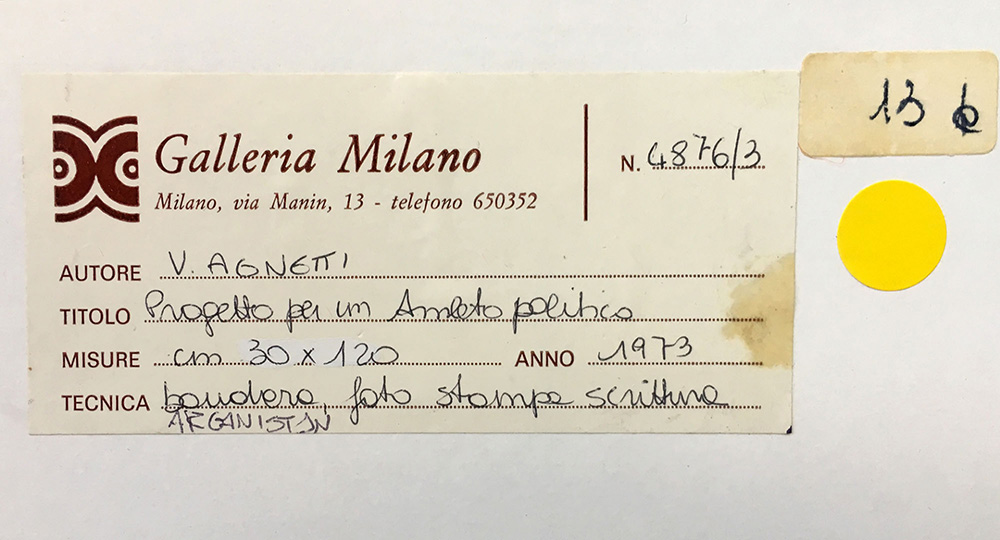 Galleria Milano
Milano, via Manin, 13 - telefono 650352
N. 4876/3
13 b
AUTORE V. AGNETTI
TITOLO Progetto per un Amleto politico
MISURE cm 30 x 120 ANNO 1973
TECNICA bandiera, foto stampe scrittura